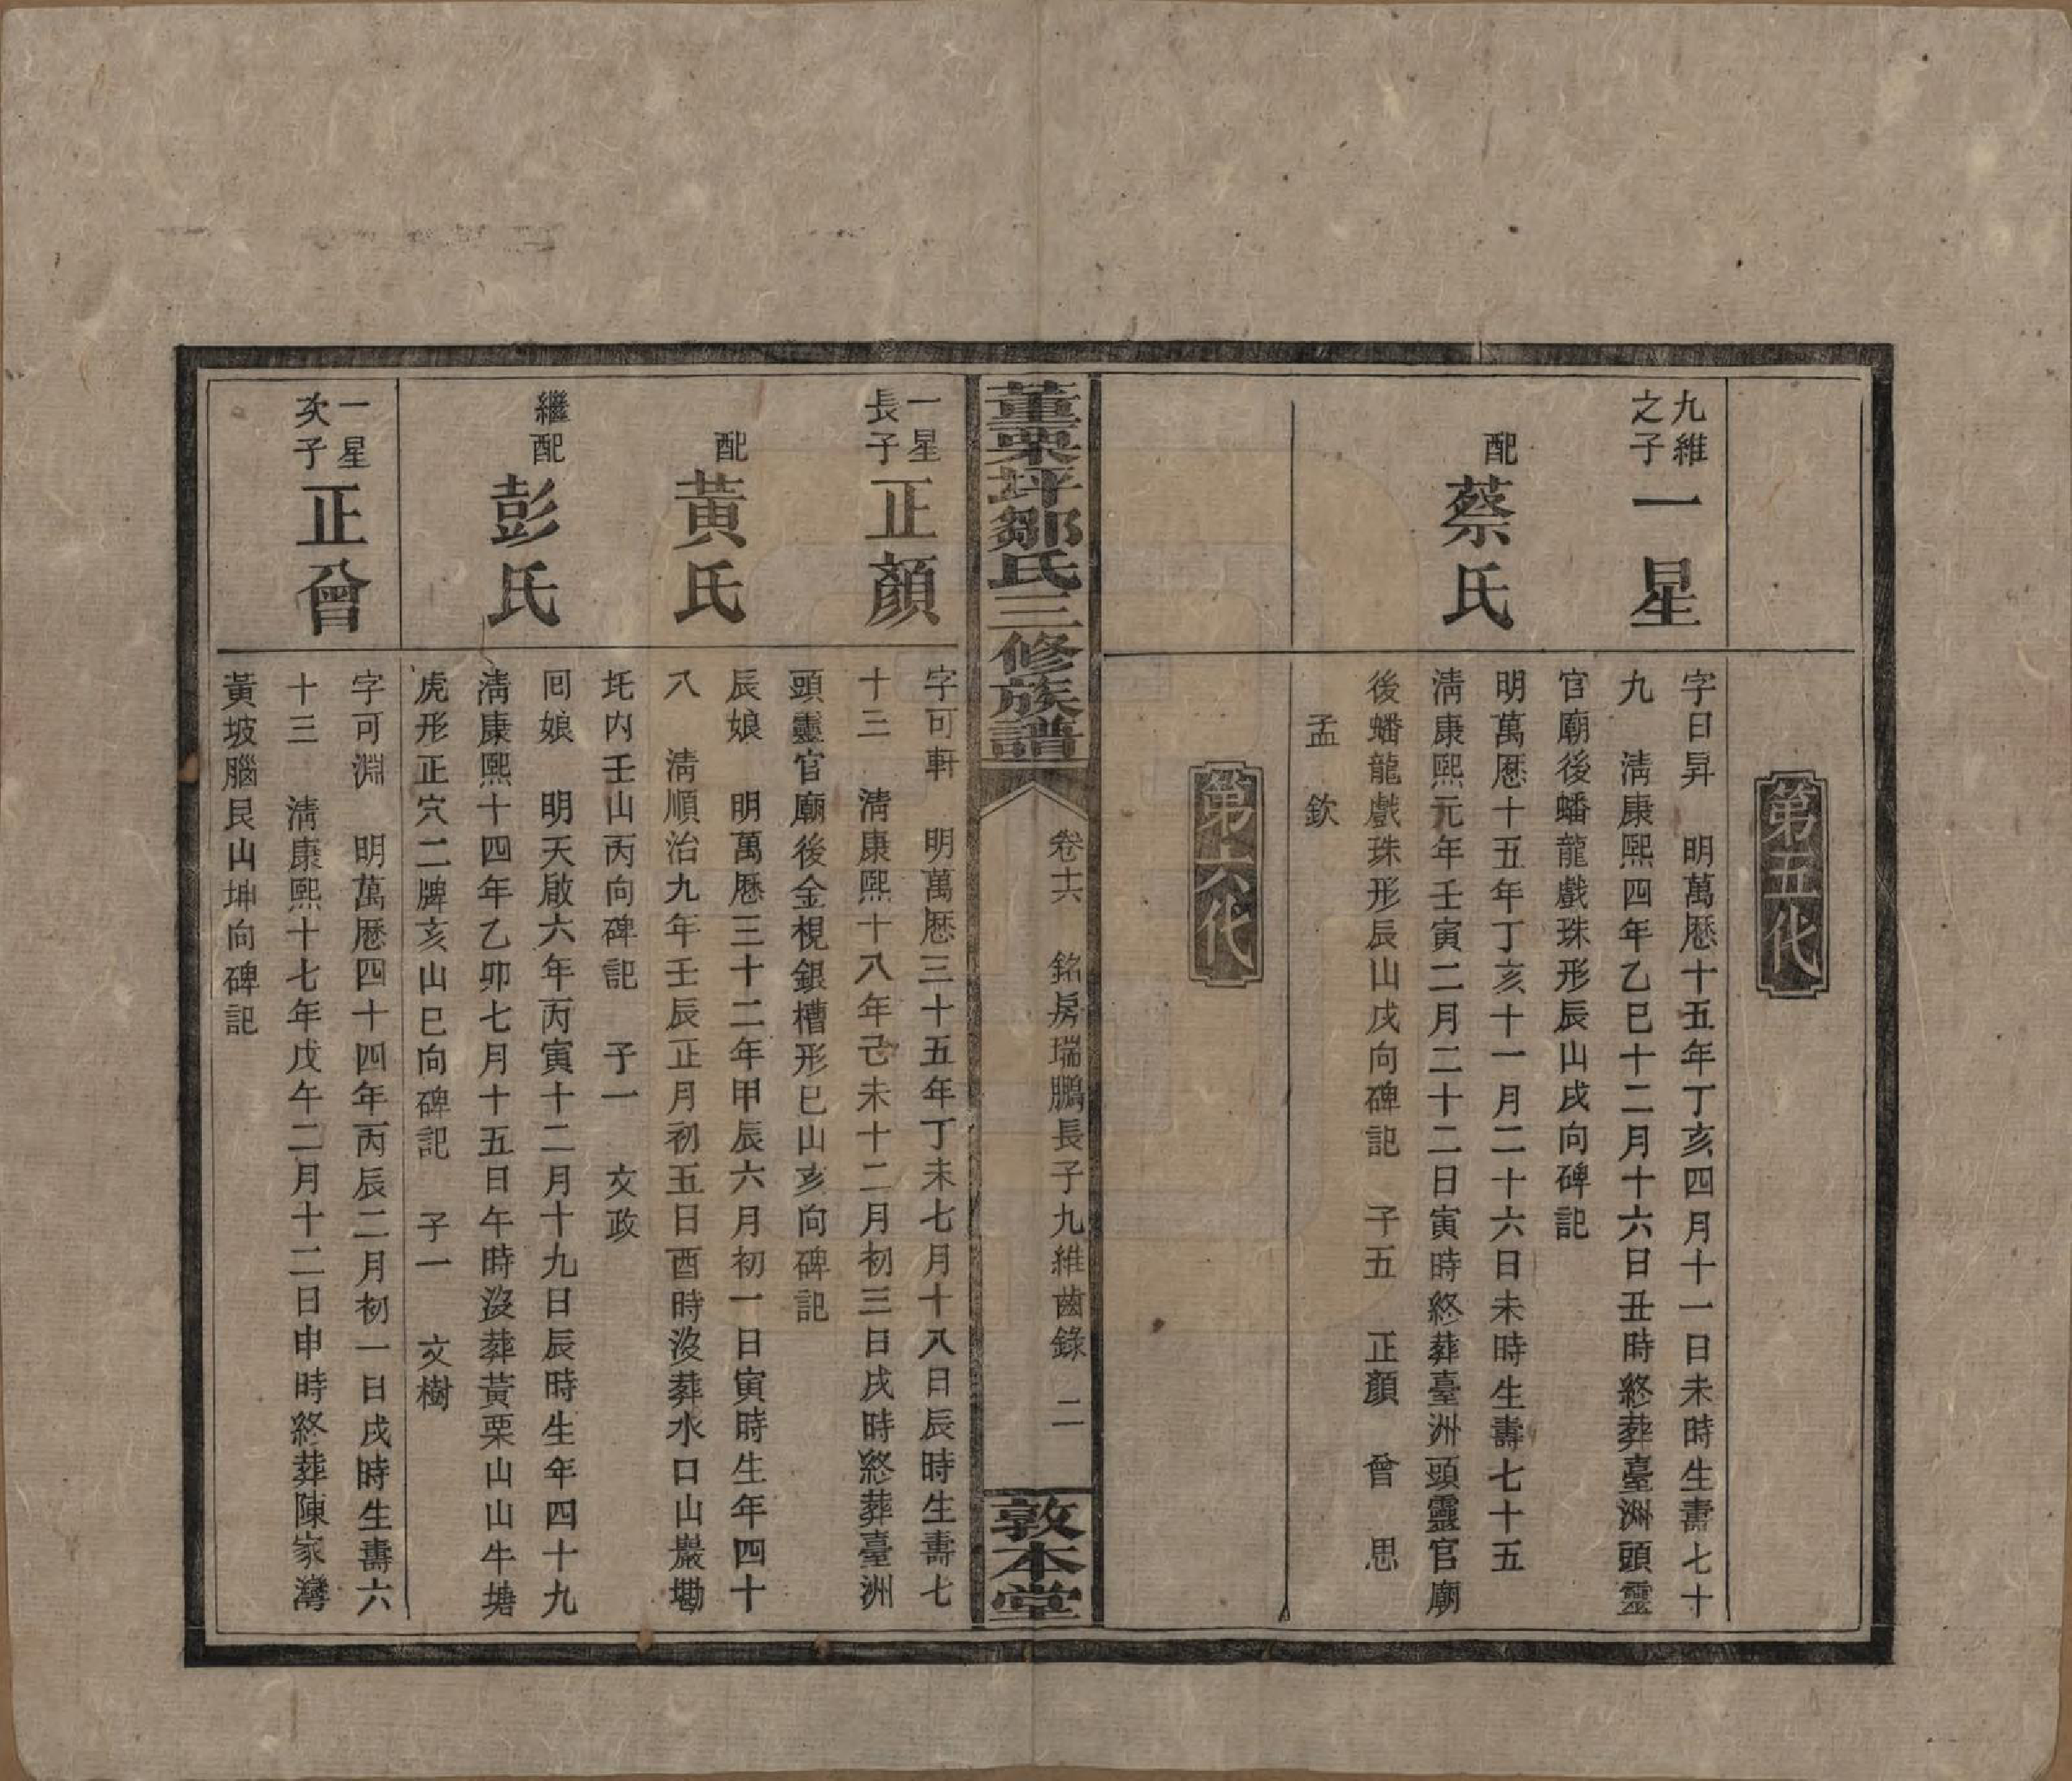 第五代
九維
之子
一星
字日昇　明萬厯十五年丁亥四月十一日未時生壽七十
九　淸康熙四年乙巳十二月十六日丑時終葬臺洲頭靈
官廟後蟠龍戲珠形辰山戌向碑記
配
蔡氏
明萬厯十五年丁亥十一月二十六日未時生壽七十五
淸康熙元年壬寅二月二十二日寅時終葬臺洲頭靈官廟
後蟠龍戲珠形辰山戌向碑記　子五　正顏　曾　思
孟　欽
第六代
董栗坪鄒氏三修族譜
卷十六　銘房瑞鵬長子九維齒錄　二
敦本堂
一星
長子
正顏
字可軒　明萬厯三十五年丁未七月十八日辰時生壽七
十三　淸康熙十八年己未十二月初三日戌時終葬臺洲
頭靈官廟後金梘銀槽形巳山亥向碑記
配
黃氏
辰娘　明萬厯三十二年甲辰六月初一日寅時生年四十
八　淸順治九年壬辰正月初五日酉時沒葬水口山巖墈
圫内壬山丙向碑記　子一　文政
繼配
彭氏
囘娘　明天啟六年丙寅十二月十九日辰時生年四十九
淸康熙十四年乙卯七月十五日午時沒葬黃栗山山牛塘
虎形正穴二牌亥山巳向碑記　子一　文樹
一星
次子
正曾
字可淵　明萬厯四十四年丙辰二月初一日戌時生壽六
十三　淸康熙十七年戊午二月十二日申時終葬陳家灣
黃坡腦艮山坤向碑記